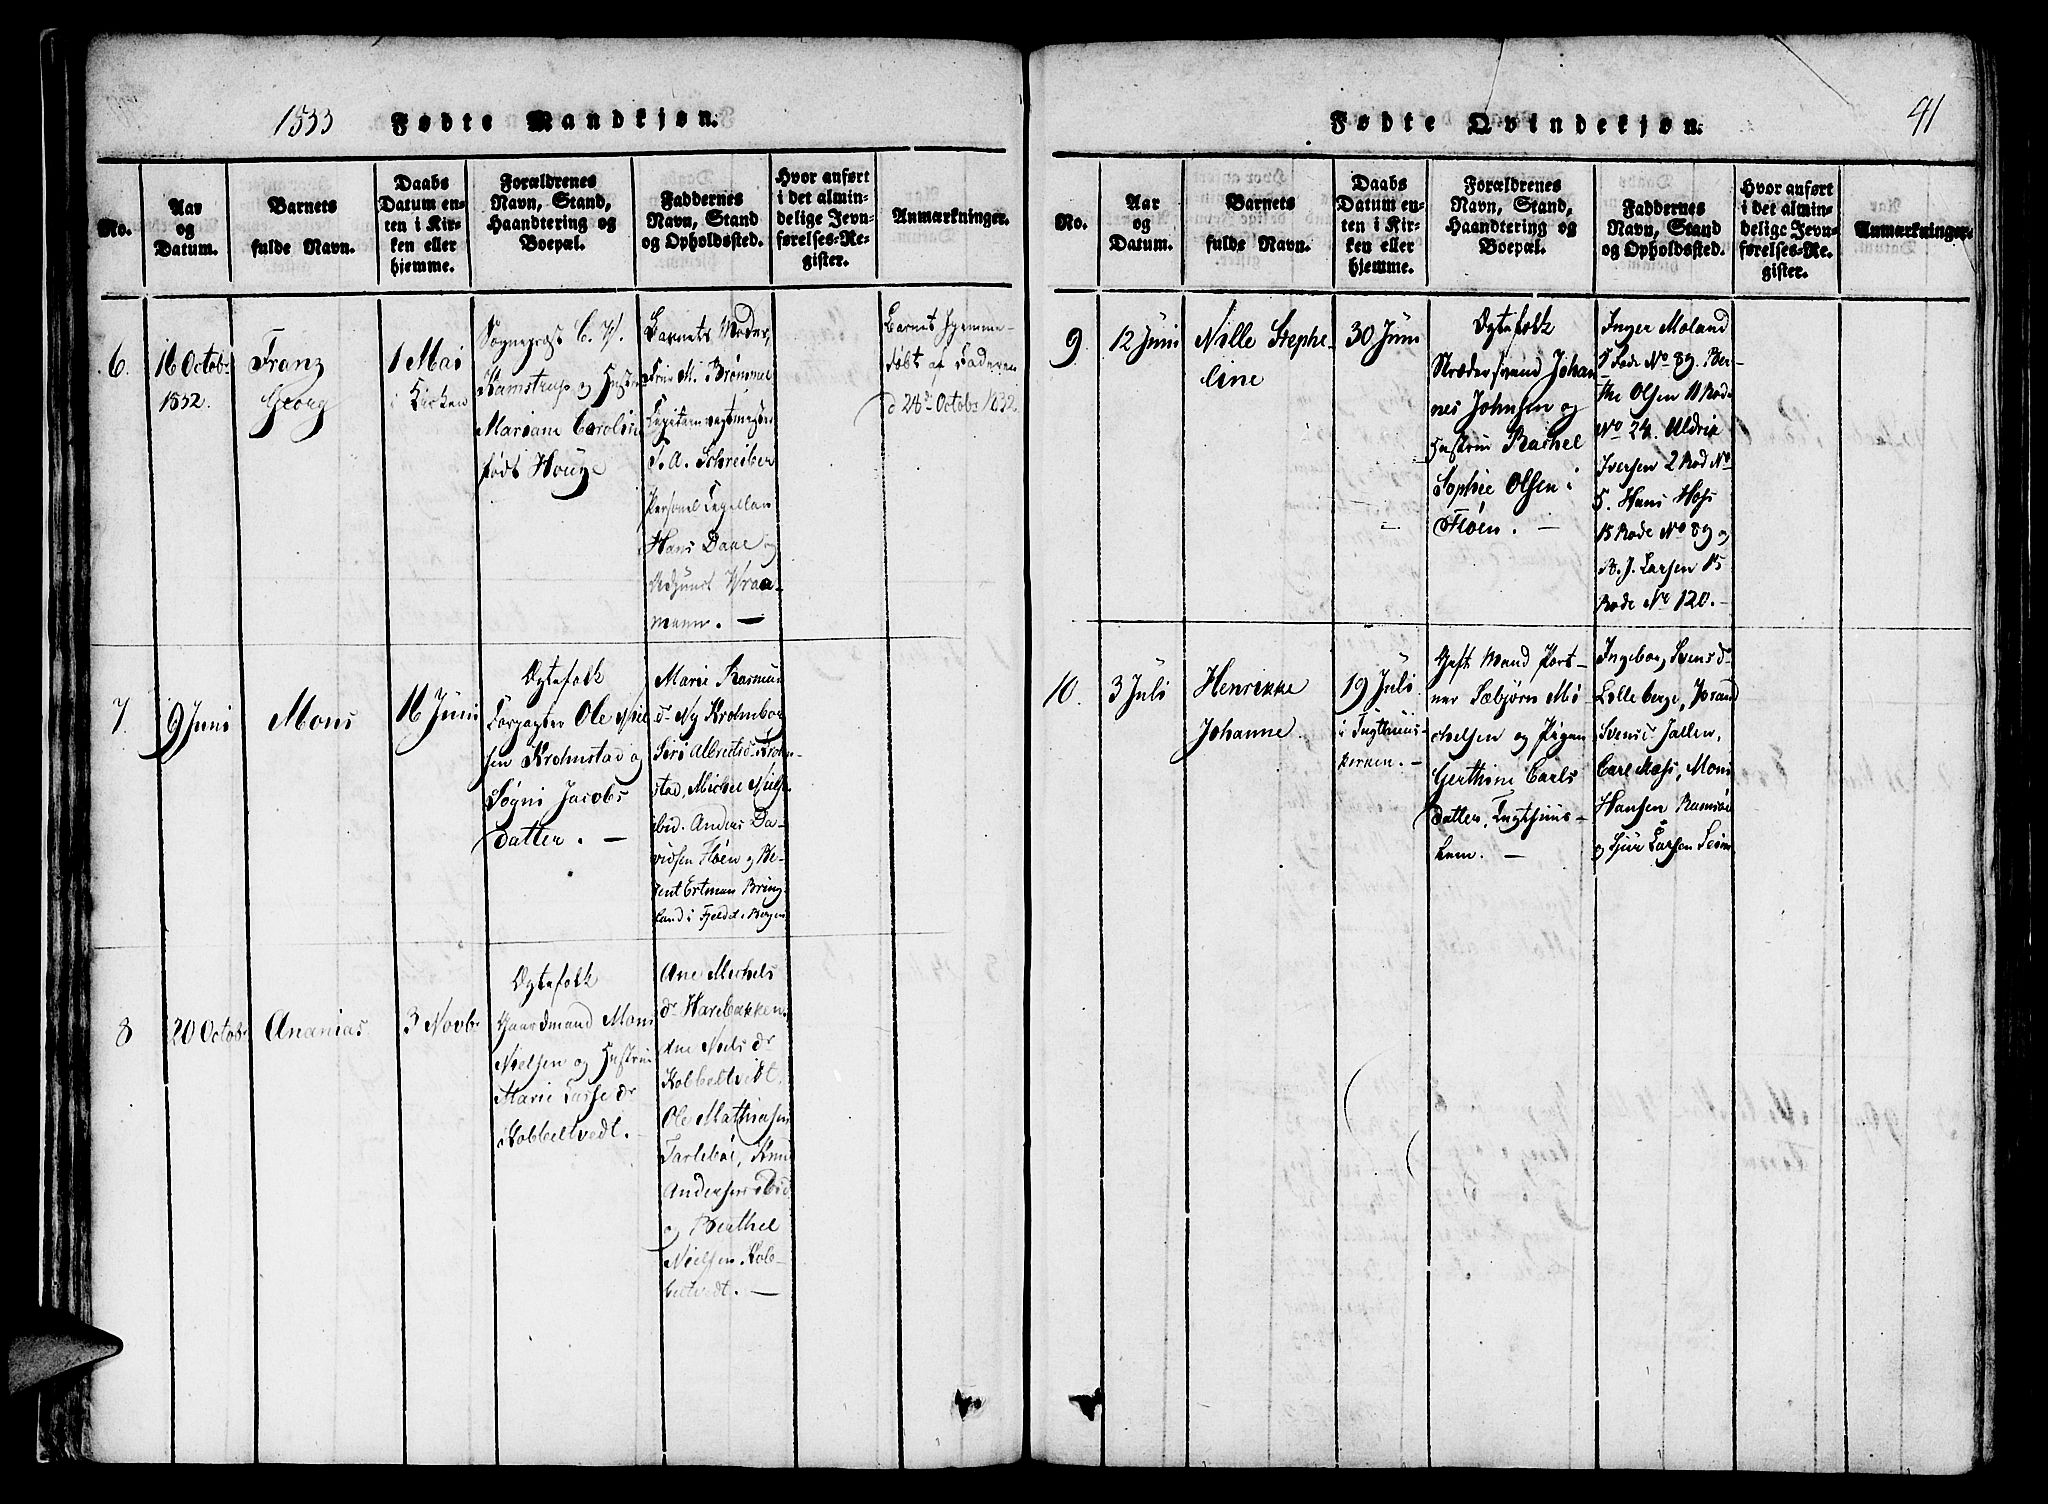 1833 Fødte Mandkjøn.
No.
Aar
og
Datum.
Barnets
fulde Navn.
Daabs
Datum en-
ten i Kir-
ken eller
hjemme.
Forældrenes
Navn, Stand,
Haandtering og
Boepæl.
Faddernes
Navn, Stand
og Opholdssted.
Hvor anført
i det almin-
delige Jevn-
førelses-Re-
gister.
Anmærkninger.
6.
16 Octobr
1832.
Franz
Georg
1 Mai
i Kirken
Sognepræst
Kamstrup og Hustru
Mariane Carolin
født Houge
Barnets Moder,
Frue M. Brømmel
T. A. Schreiber
Personel Capellan
Hans Daae og
Adjunct Vraa-
mann. —
Barnet hjemme-
døbt af Faderen
d 28de Octobr 1832
7.
9 Juni
Mons
16 Juni
Ægtefolk
Forpagter Ole Niel
sen Kronstad og
Søgni Jacobs
datter. —
Marie Rasmus
dr Ny Krohnborg
Siri Albretsdr Krohn-
stad, Michel Niels.
ibid. Anders Da-
vidsen Fløen og Be-
rent Ertman Bring-
land i Fjeldet i Bergen
8
20 Octobr
Ananias.
3 Novbr
Ægtefolk
Gaardmand Mons
Nielsen og Hustrue
Marie Lasse dr
Kobbeltvedt. —
Ane Michels
dr Harebakken.
Ane Niels dr
Kobbeltvedt.
Ole Mathiasen
Tarlebøe, Knud
Andersen ibid
og Berthel
Nielsen Kob-
beltvedt. —
Fødte Qvindekjøn. 41
No.
Aar
og
Datum.
Barnets
fulde Navn.
Daabs
Datum en-
ten i Kir-
ken eller
hjemme.
Forældrenes
Navn, Stand,
Haandtering og
Boepæl.
Faddernes
Navn, Stand
og Opholdssted.
Hvor anført
i det almin-
delige Jevn-
førelses-Re-
gister.
Anmærkninger.
9.
12 Juni
Nille Stephe-
line
30 Juni
Ægtefolk
Skrædersvend Johan
nes Johnsen og
Hustrue Rachel
Sophie Olsen i
Fløen. —
Inger Moland
5 Rode No 89. Ber-
the Olsen 11 Rode
No 24. Uldrik
Iversen 2 Rod No
5. Hans Hass
15 Rode No 89 og
B. J. Larsen 15
Rode No 120. —
10.
3 Juli
Henrikke
Johanne.
19 Juli
i Tugthuus-
kirken. —
Gift Mand Port-
ner Sæbjørn Mi-
chelsen og Pigen
Gerthine Carls
datter, Tugthuus-
lem. —
Ingebor, Svensdr
Lilleberge, Jorand
Svensdr Jallen,
Carl Mass, Mons
Hansen Ramsøe
og Siur Larsen Seim